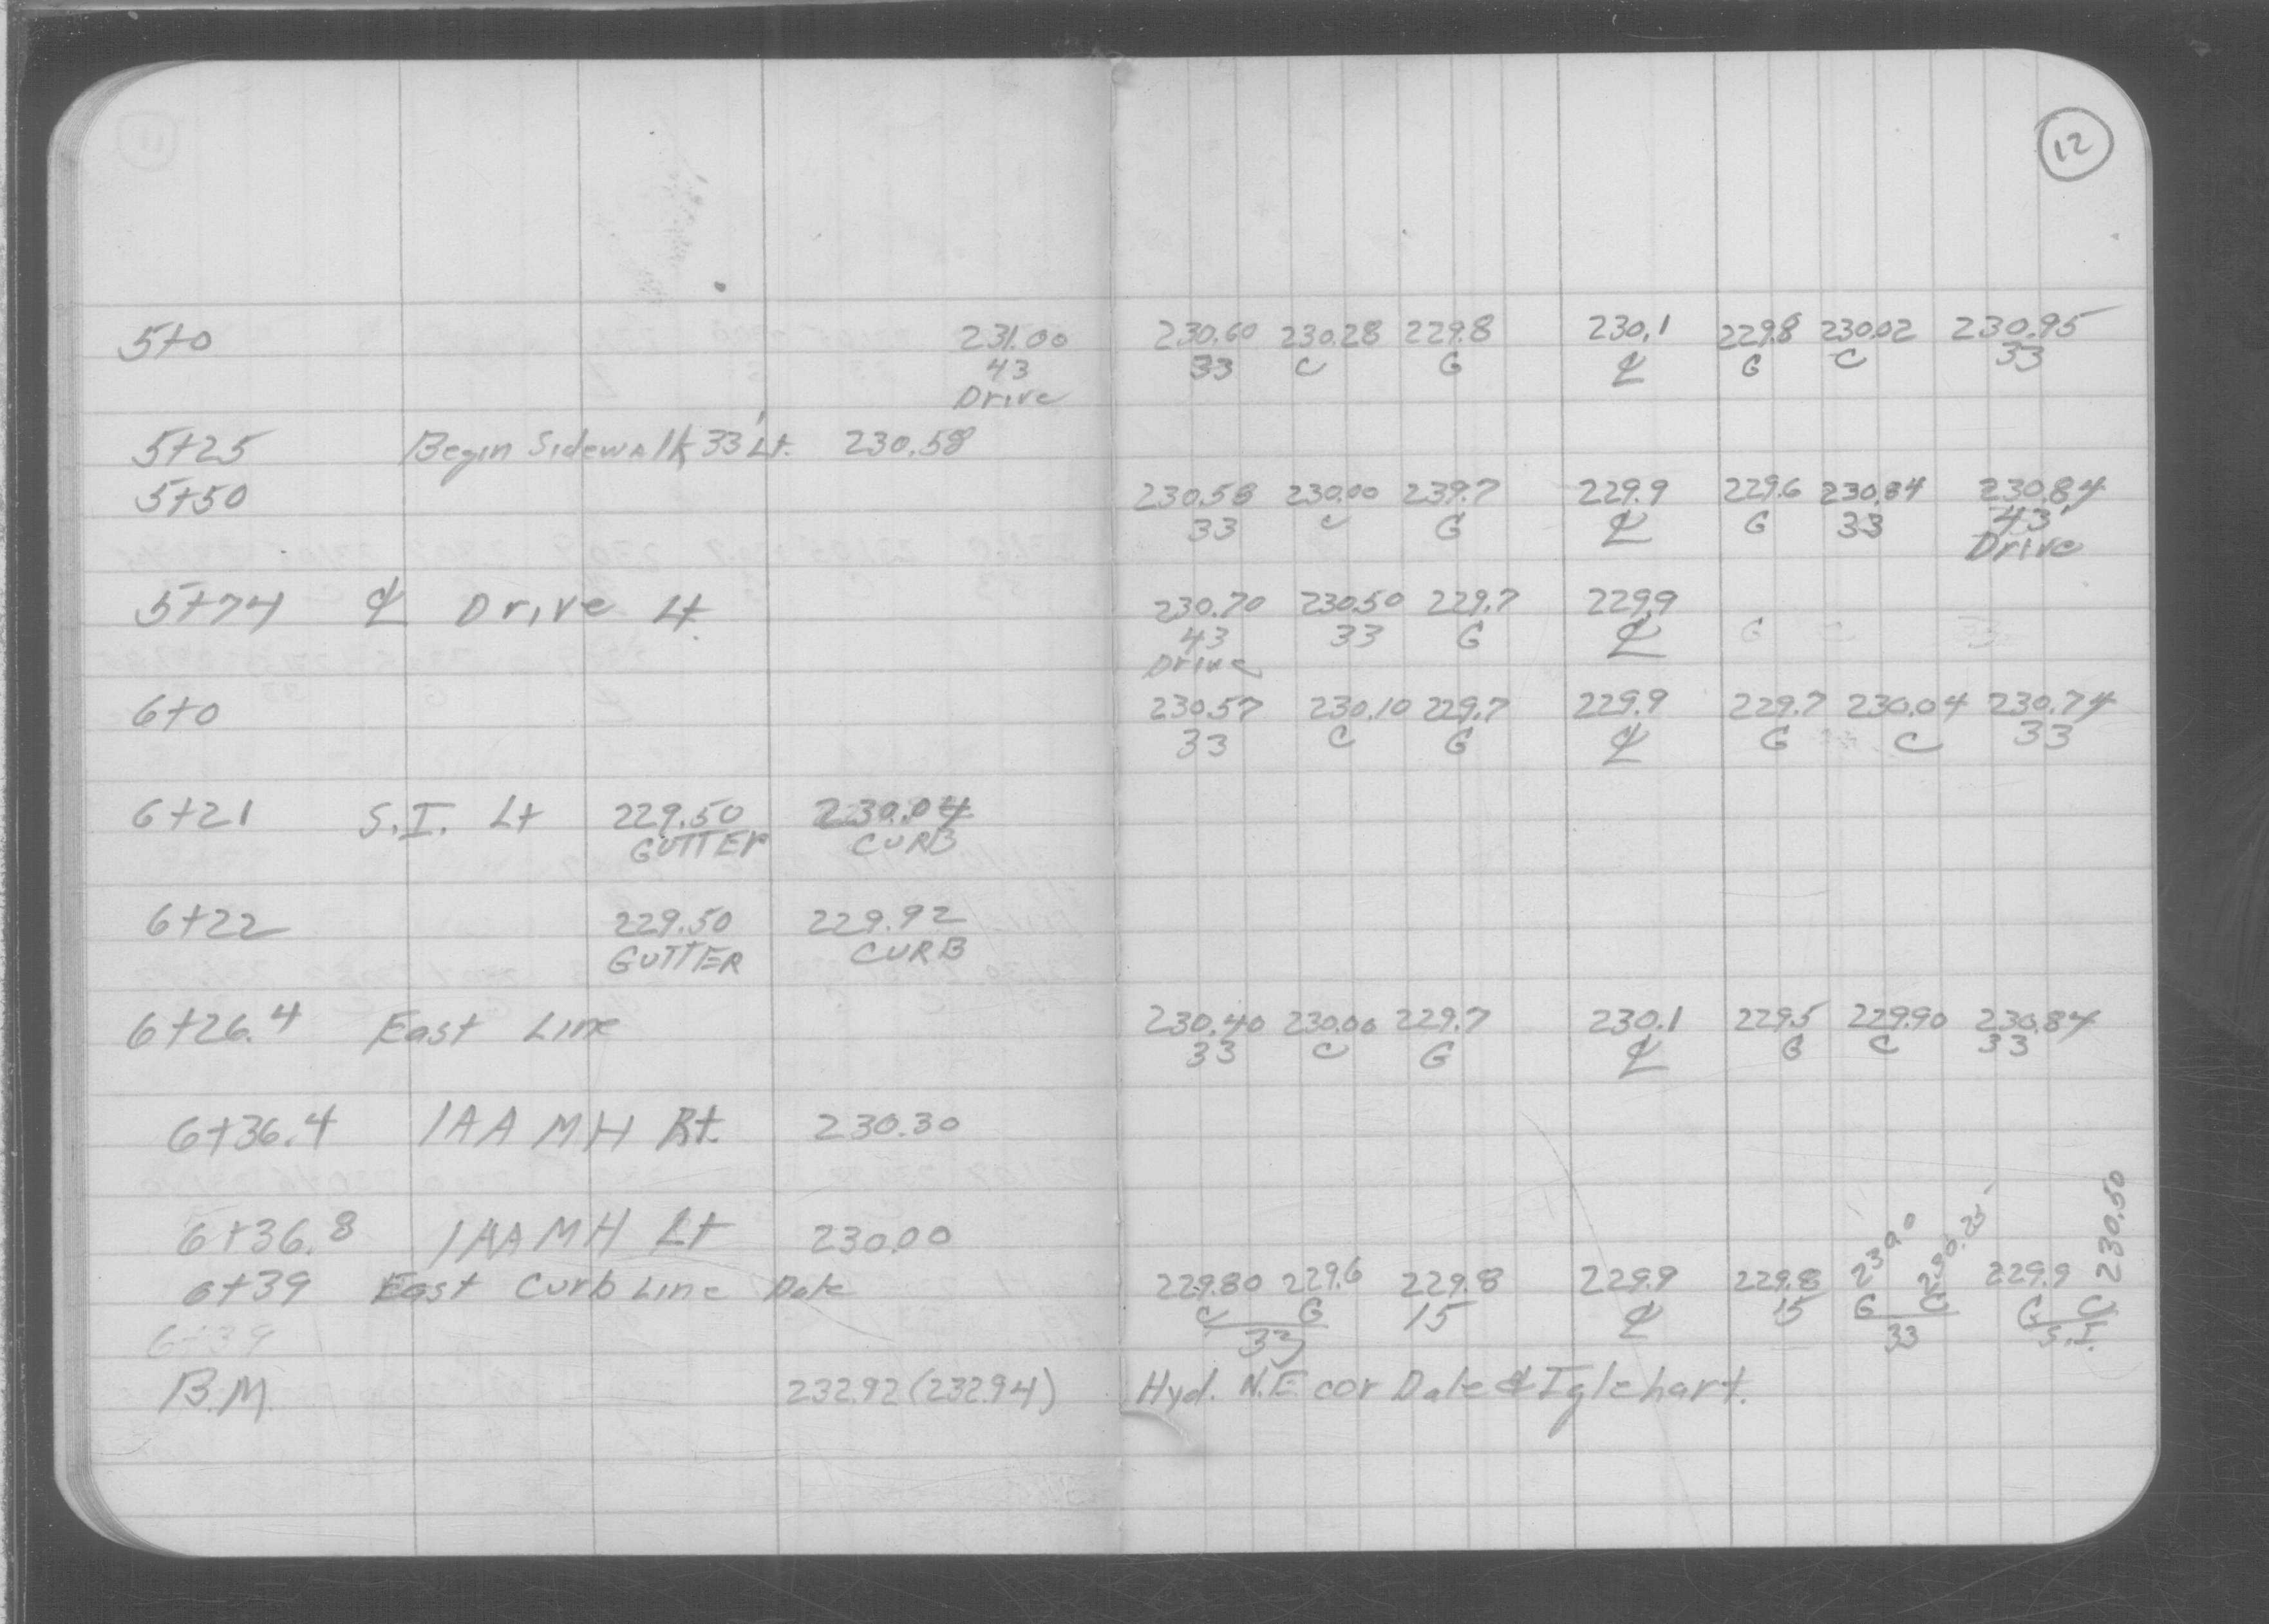 12
5+0 231.00 230.60 230.28 229.8 230.1 229.8 230.02 230.95
43 33 C G ℄ G C 33
Drive
5+25 Begin Sidewalk 33' Lt. 230.58
5+50 230.58 230.00 239.7 229.9 229.6 230.84 230.84
33 C G ℄ G 33 43'
Drive
5+74 ℄ Drive Lt. 230.70 230.50 229.7 229.9
43 33 G ℄ G C 33
Drive
6+0 230.57 230.10 229.7 229.9 229.7 230.04 230.74
33 C G ℄ G C 33
6+21 S.I. Lt 229.50 230.04
GUTTER CURB
6+22 229.50 229.92
GUTTER CURB
6+26.4 East Line 230.40 230.00 229.7 230.1 229.5 229.90 230.84
33 C G ℄ G C 33
6+36.4 1AA MH Rt. 230.30
6+36.8 1AA MH Lt 230.00
6+39 East Curb Line Dale 229.80 229.6 229.8 229.9 229.8 230.25 229.9 230.50
C G 15 ℄ 15 G C G C
33 33 S.I.
6+39
B.M. 232.92 (232.94) Hyd. N.E cor Dale & Iglehart.